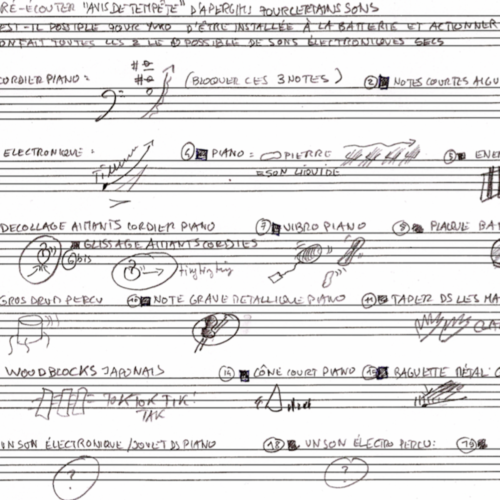 RÉ-ÉCOUTER "AVIS DE TEMPÊTE" D'APERGHIS POUR CERTAINS SONS
EST-IL POSSIBLE POUR YUKO D'ÊTRE INSTALLÉE À LA BATTERIE ET ACTIONNER
ON FAIT TOUTES LES 2 LE + POSSIBLE DE SONS ÉLECTRONIQUES SECS
CORDIER PIANO = (BLOQUER CES 3 NOTES) 2 NOTES COURTES AIGU
ELECTRONIQUE = 4 PIANO = PIERRE 5
= SON LIQUIDE
DECOLLAGE AIMANTS CORDIER PIANO 7 VIBRO PIANO 8 PLAQUE BA
6bis GLISSAGE AIMANTS CORDIES
GROS DRUM PERCU 10 NOTE GRAVE METALLIQUE PIANO 11 TAPER DS LES MA
CLA
WOODBLOCKS JAPONAIS 14 CÔNE COURT PIANO 15 BAGUETTE MÉTAL
TOK TOK TIK!
TAK
UN SON ÉLECTRONIQUE/JOUET DS PIANO 18 UN SON ÉLECTRO PERCU: 19
? ?